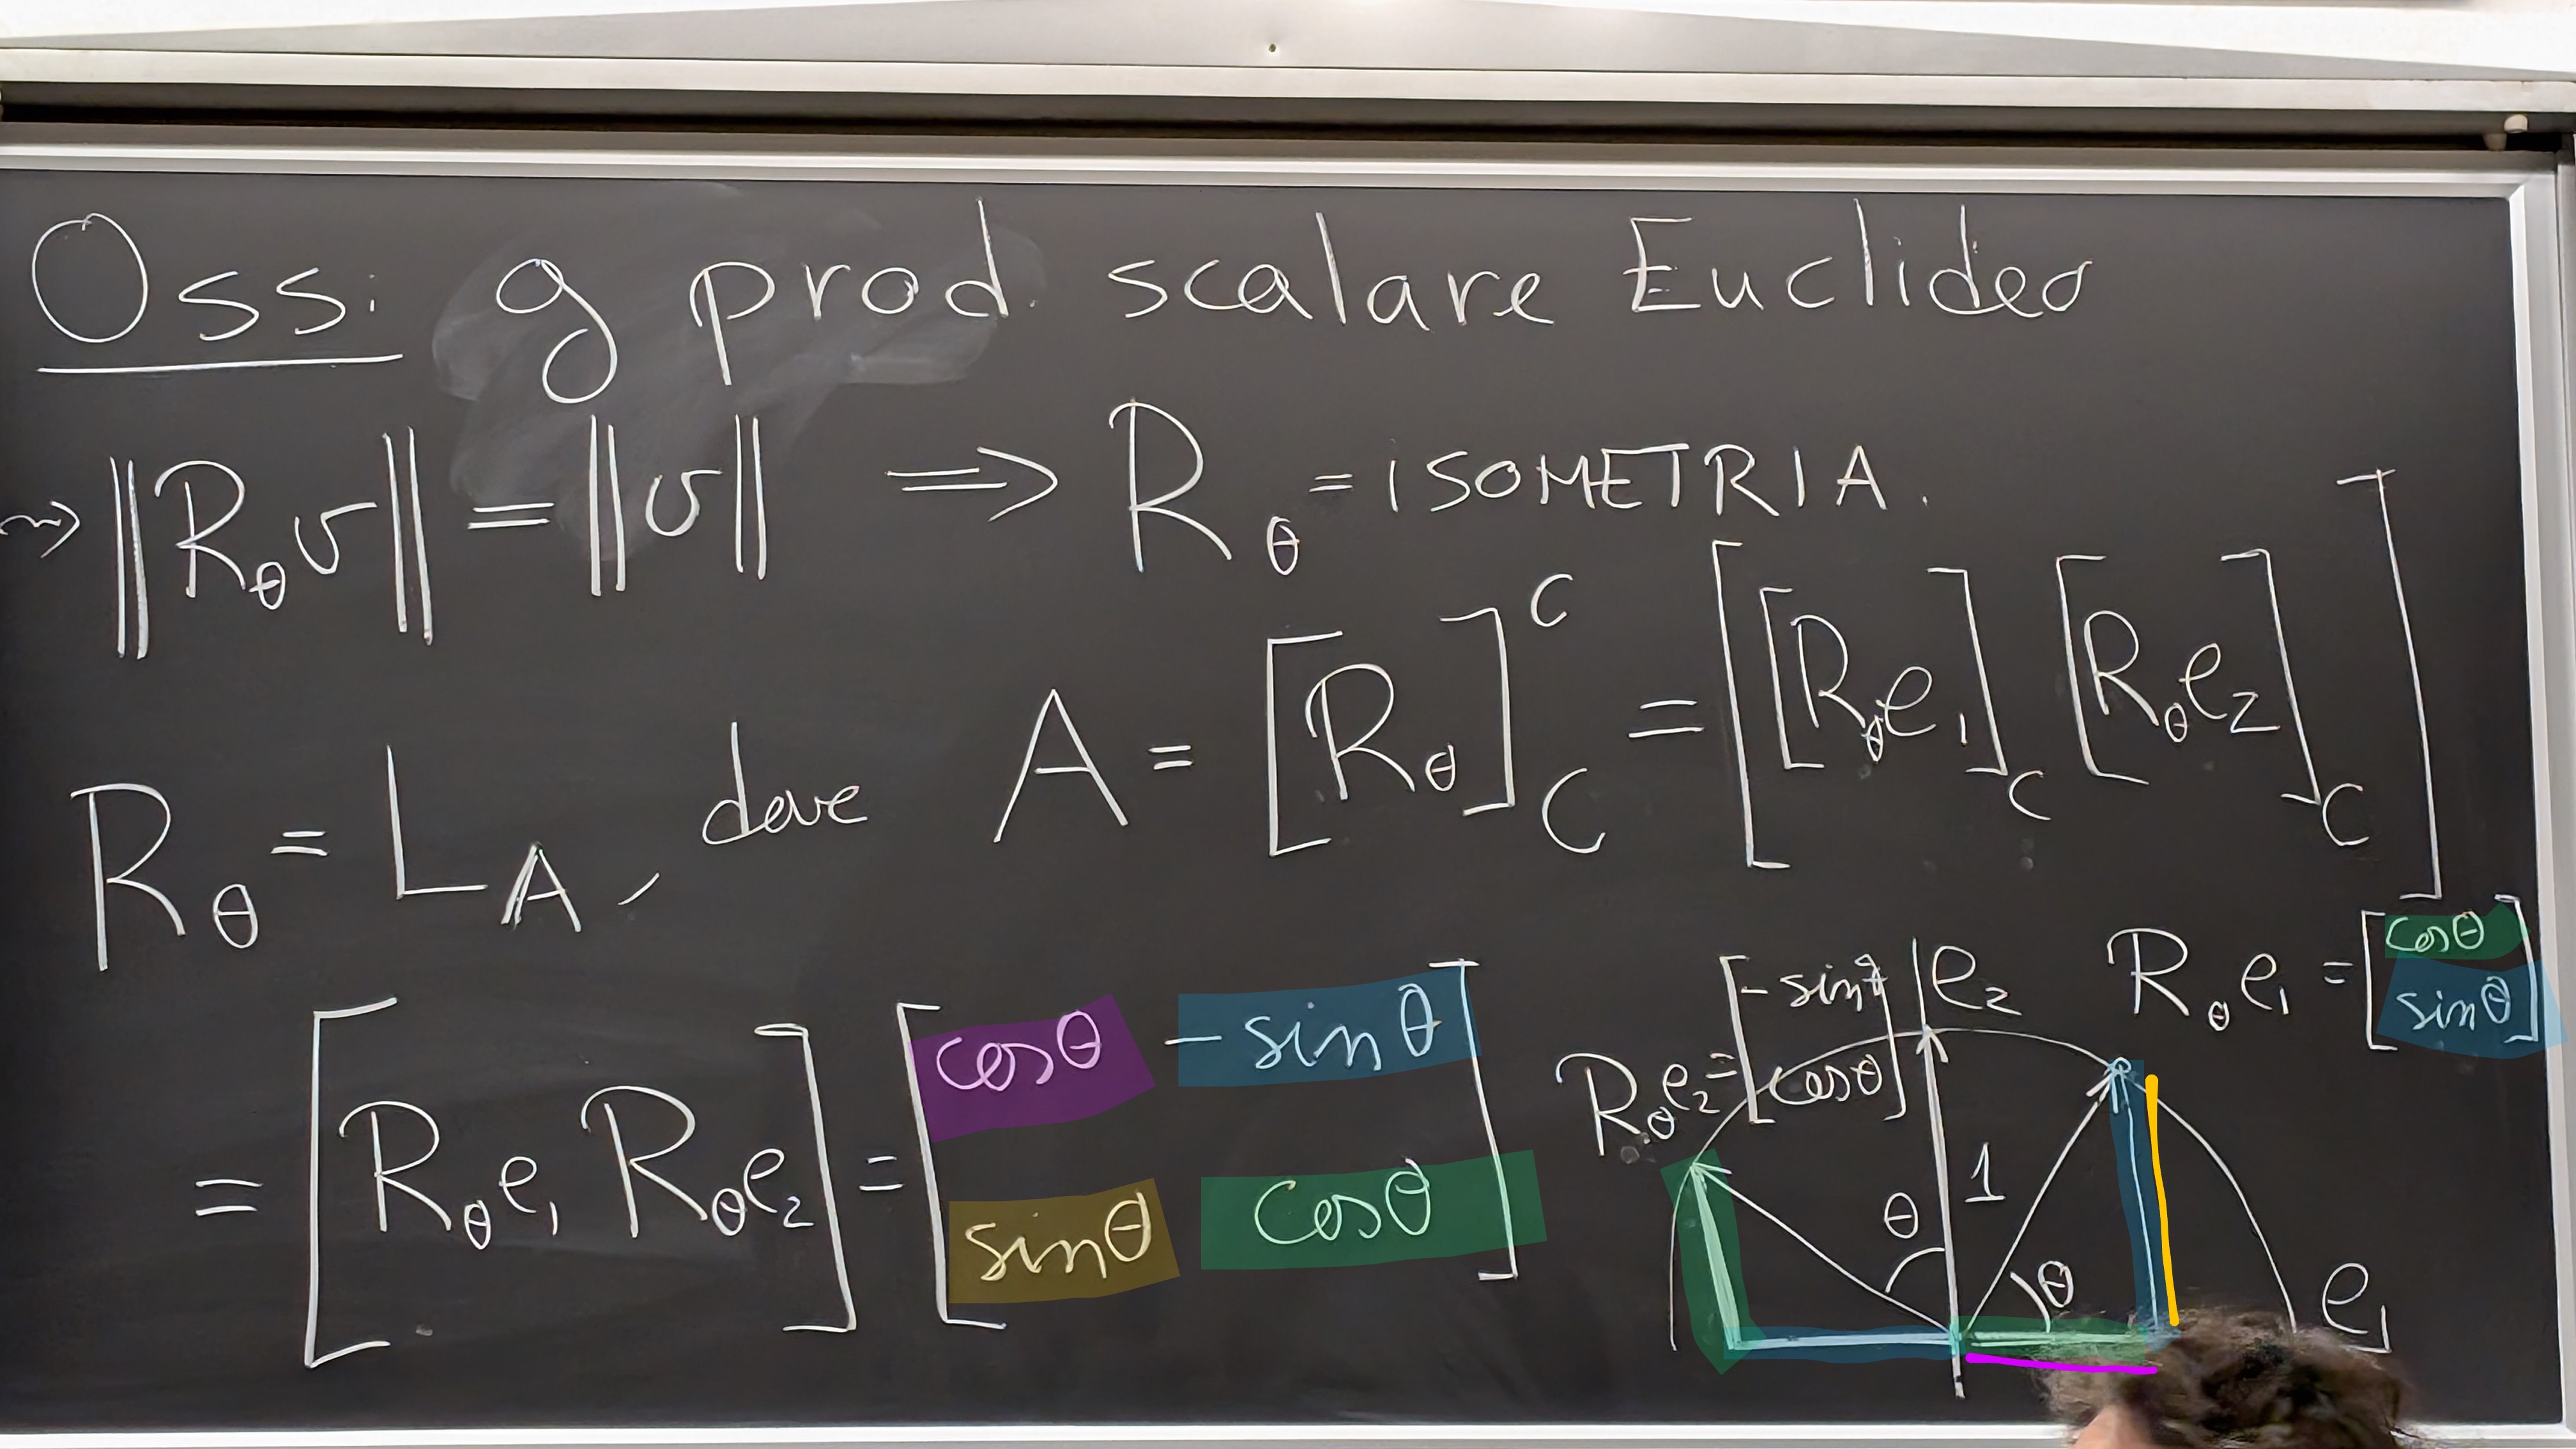 Oss: g prod. scalare Euclideo
⇝ ||R_θ v|| = ||v|| ⟹ R_θ = ISOMETRIA.
R_θ = L_A, dove A = [R_θ]^C_C = [[R_θ e_1]_C [R_θ e_2]_C]
= [R_θ e_1 R_θ e_2] = [cosθ -sinθ
sinθ cosθ]
R_θ e_2 = [-sinθ
cosθ]
e_2
R_θ e_1 = [cosθ
sinθ]
θ 1 θ e_1